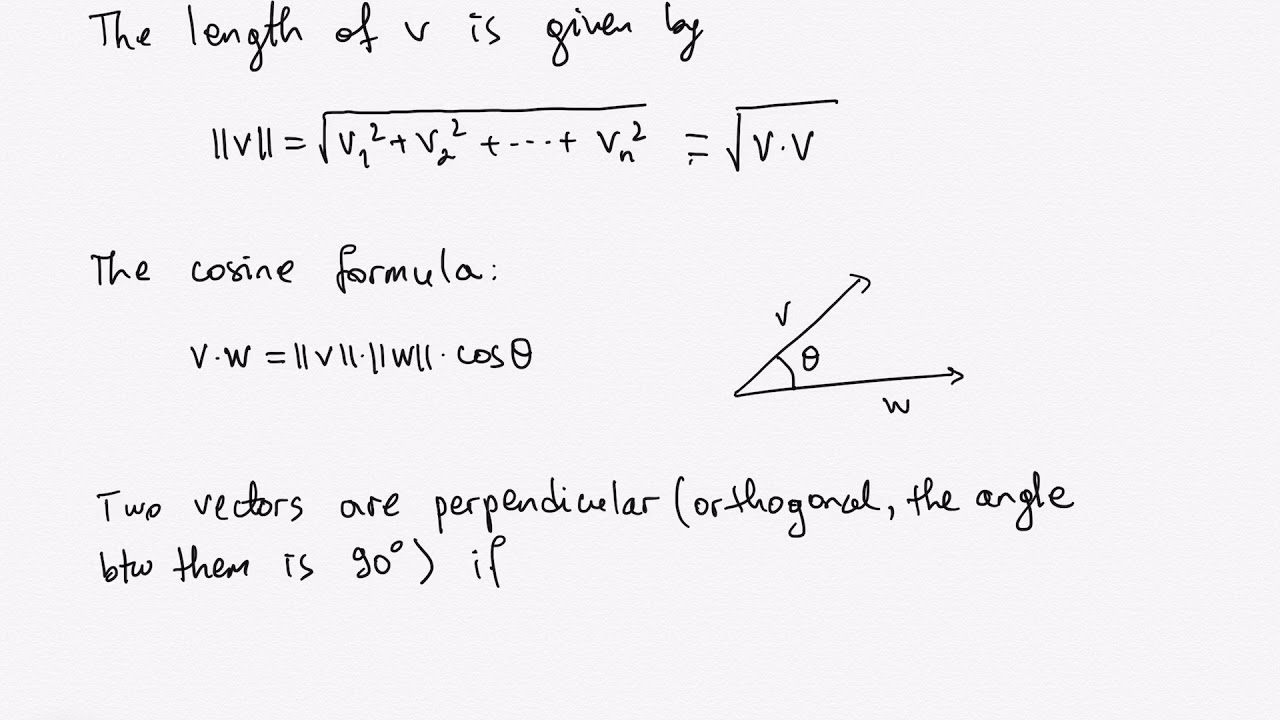 The length of v is given by
||v|| = √(v₁² + v₂² + ··· + vₙ²) = √(v·v)
The cosine formula:
v·w = ||v||·||w||·cosθ
v
θ
w
Two vectors are perpendicular (orthogonal, the angle
btw them is 90°) if